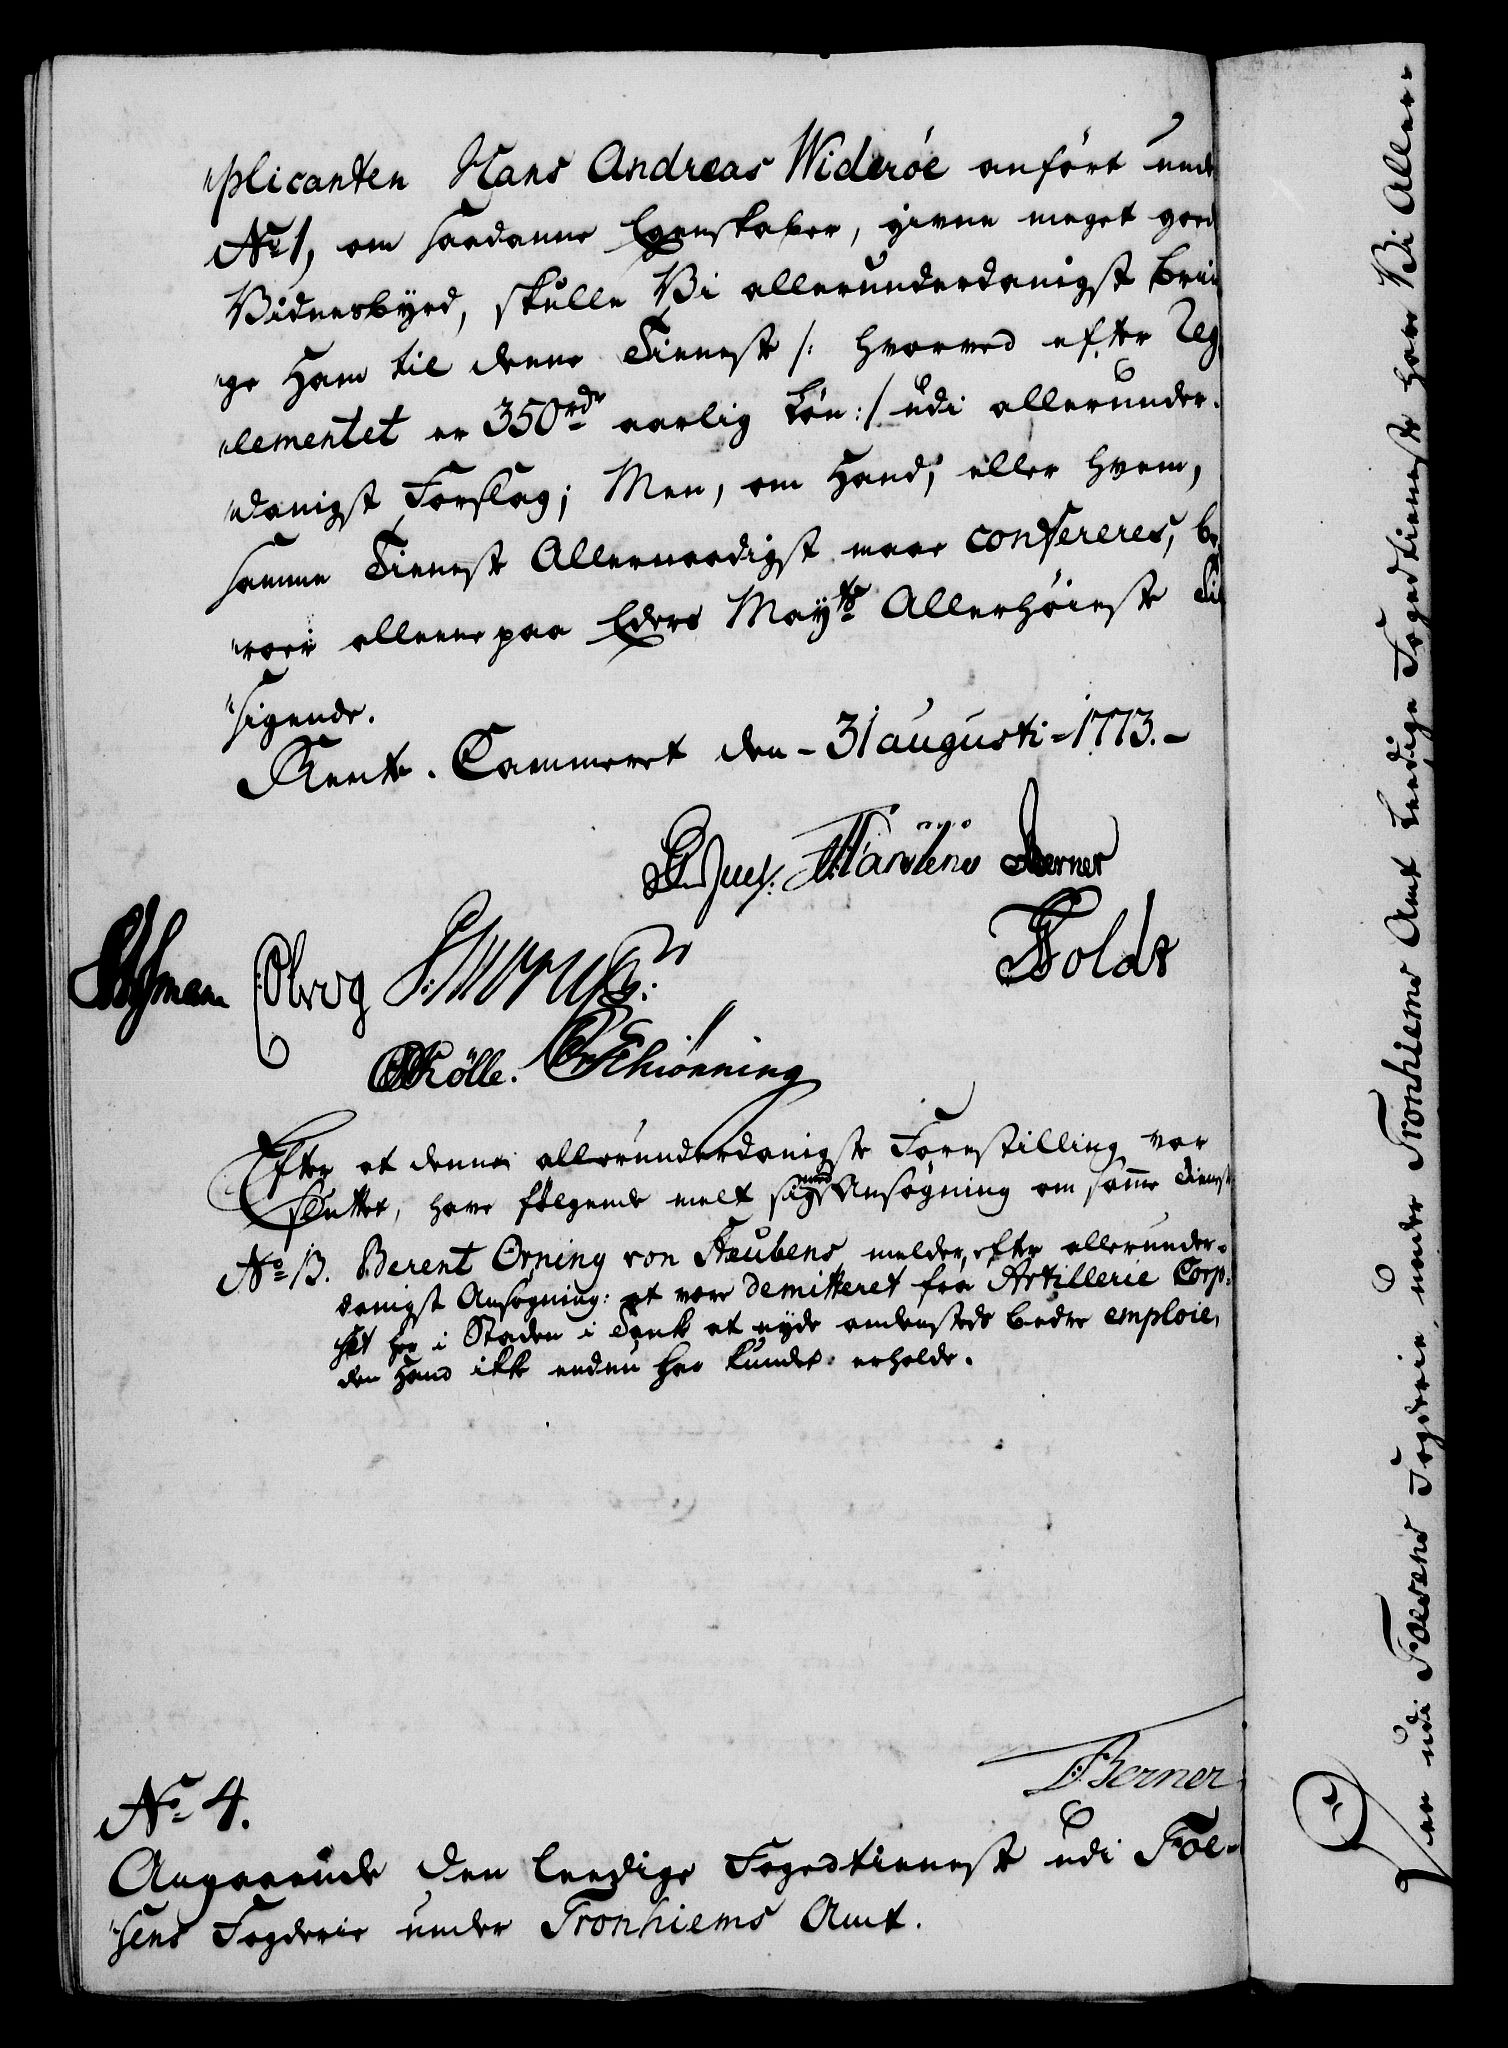 "plicanten Hans Andreas Widerøe anført unde
No 1, om saadanne Egenskaber, givne meget goed
Vidnesbyrd, skulle Vi allerunderdanigst brin
"ge Ham til denne Tieneste /: hvorved efter Reg
"lementet er 350 rdr aarlig Løn :/ udi allerunder-
"danigst Forslag; Men, om Hand, eller hvem,
samme Tieneste Allernaadigst maae confereres, be
"roer alleene paa Eders Mayts Allerhøieste Til
"sigende.
Rente-Cammeret den - 31 augusti - 1773.-
Juel. Mårtens Berner
Holdt
Olrog
Rølle. Schiønning
Efter at denne allerunderdanigste Forestilling var
sluttet, have følgende meldt sig med Ansøgning om samme Tieneste
No 13. Berent Orning von Steubens melder, efter allerunder-
danigst Ansøgning: at være demitteret fra Artillerie Corp-
set her i Staden i Tank at nyde andensteds bedre emploie,
den Hand ikke endnu har kundet erholde.
T: Berner
No 4.
Angaaende den leedige Fogedtieneste udi Foe-
"sens Fogderie under Tronhiems Amt.
Den udi Foesens Fogderie under Tronhiems Amt leedige Fogedtieneste have Vi Aller-